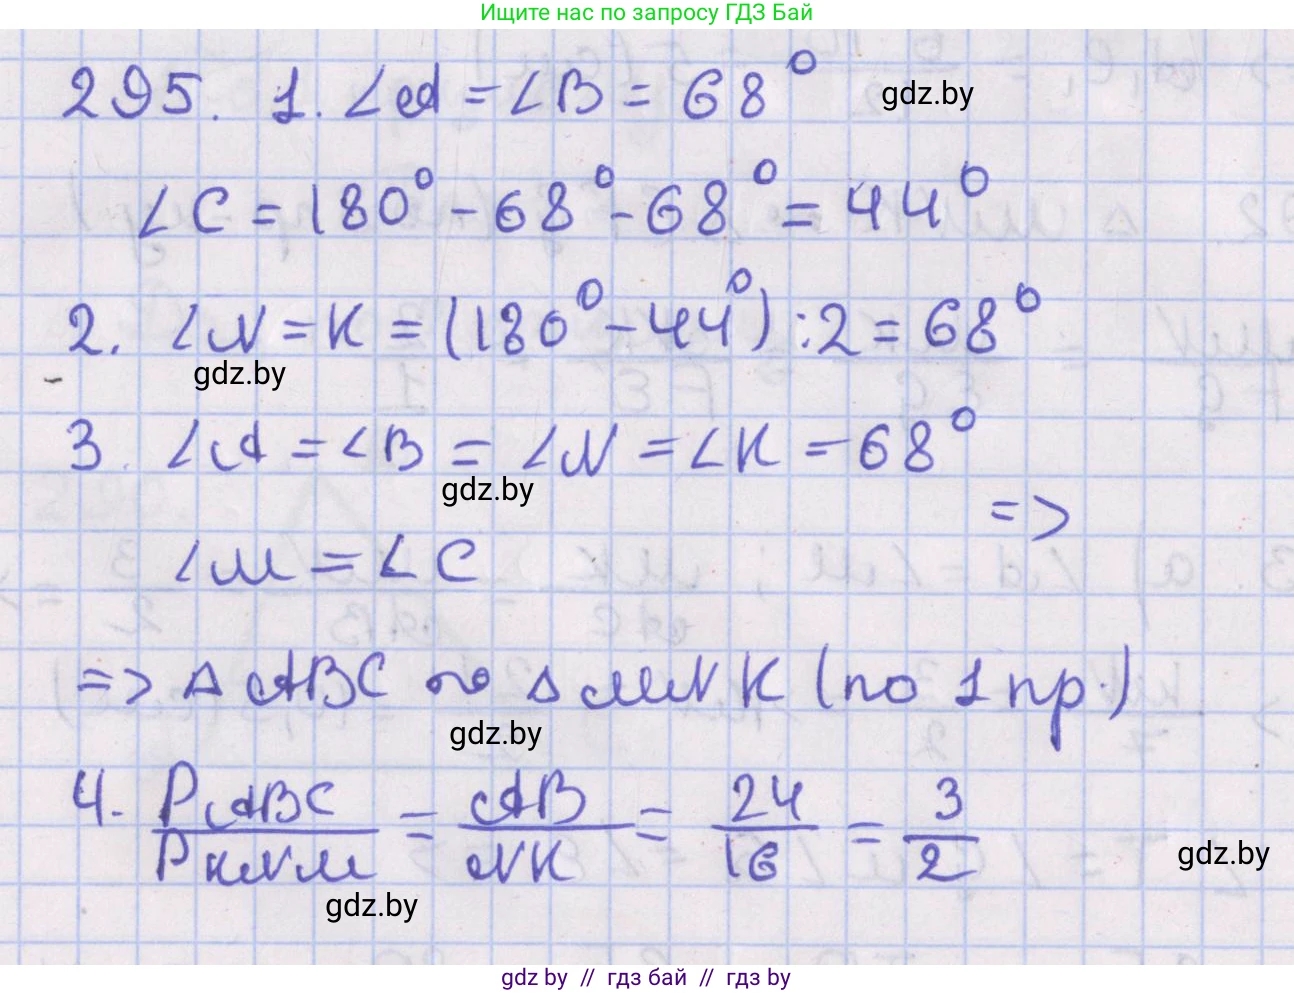 Ищите нас по запросу ГДЗ Бай
295. 1. ∠A = ∠B = 68°
gdz.by
∠C = 180° - 68° - 68° = 44°
2. ∠N = K = (180° - 44°) : 2 = 68°
gdz.by
3. ∠A = ∠B = ∠N = ∠K = 68°
gdz.by
=>
∠M = ∠C
=> △ ABC ~ △ MNK (по 1 пр.)
gdz.by
4. P ABC / P KNM = AB / NK = 24 / 16 = 3 / 2
gdz.by
gdz.by
gdz by // гдз бай // гдз by